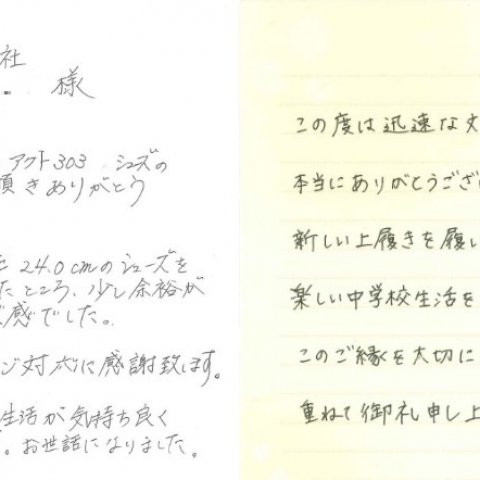 社
様
アクト303 シューズの
頂きありがとう
24.0cmのシューズを
たところ、少し余裕が
感でした。
対応に感謝致します。
生活が気持ち良く
。お世話になりました。
この度は迅速な
本当にありがとうござ
新しい上履きを履い
楽しい中学校生活を
このご縁を大切に
重ねて御礼申し上